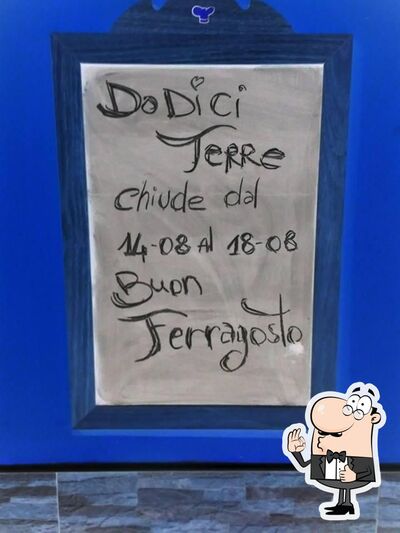 DoDiCi
TERRE
chiude dal
14-08 Al 18-08
Buon
Ferragosto